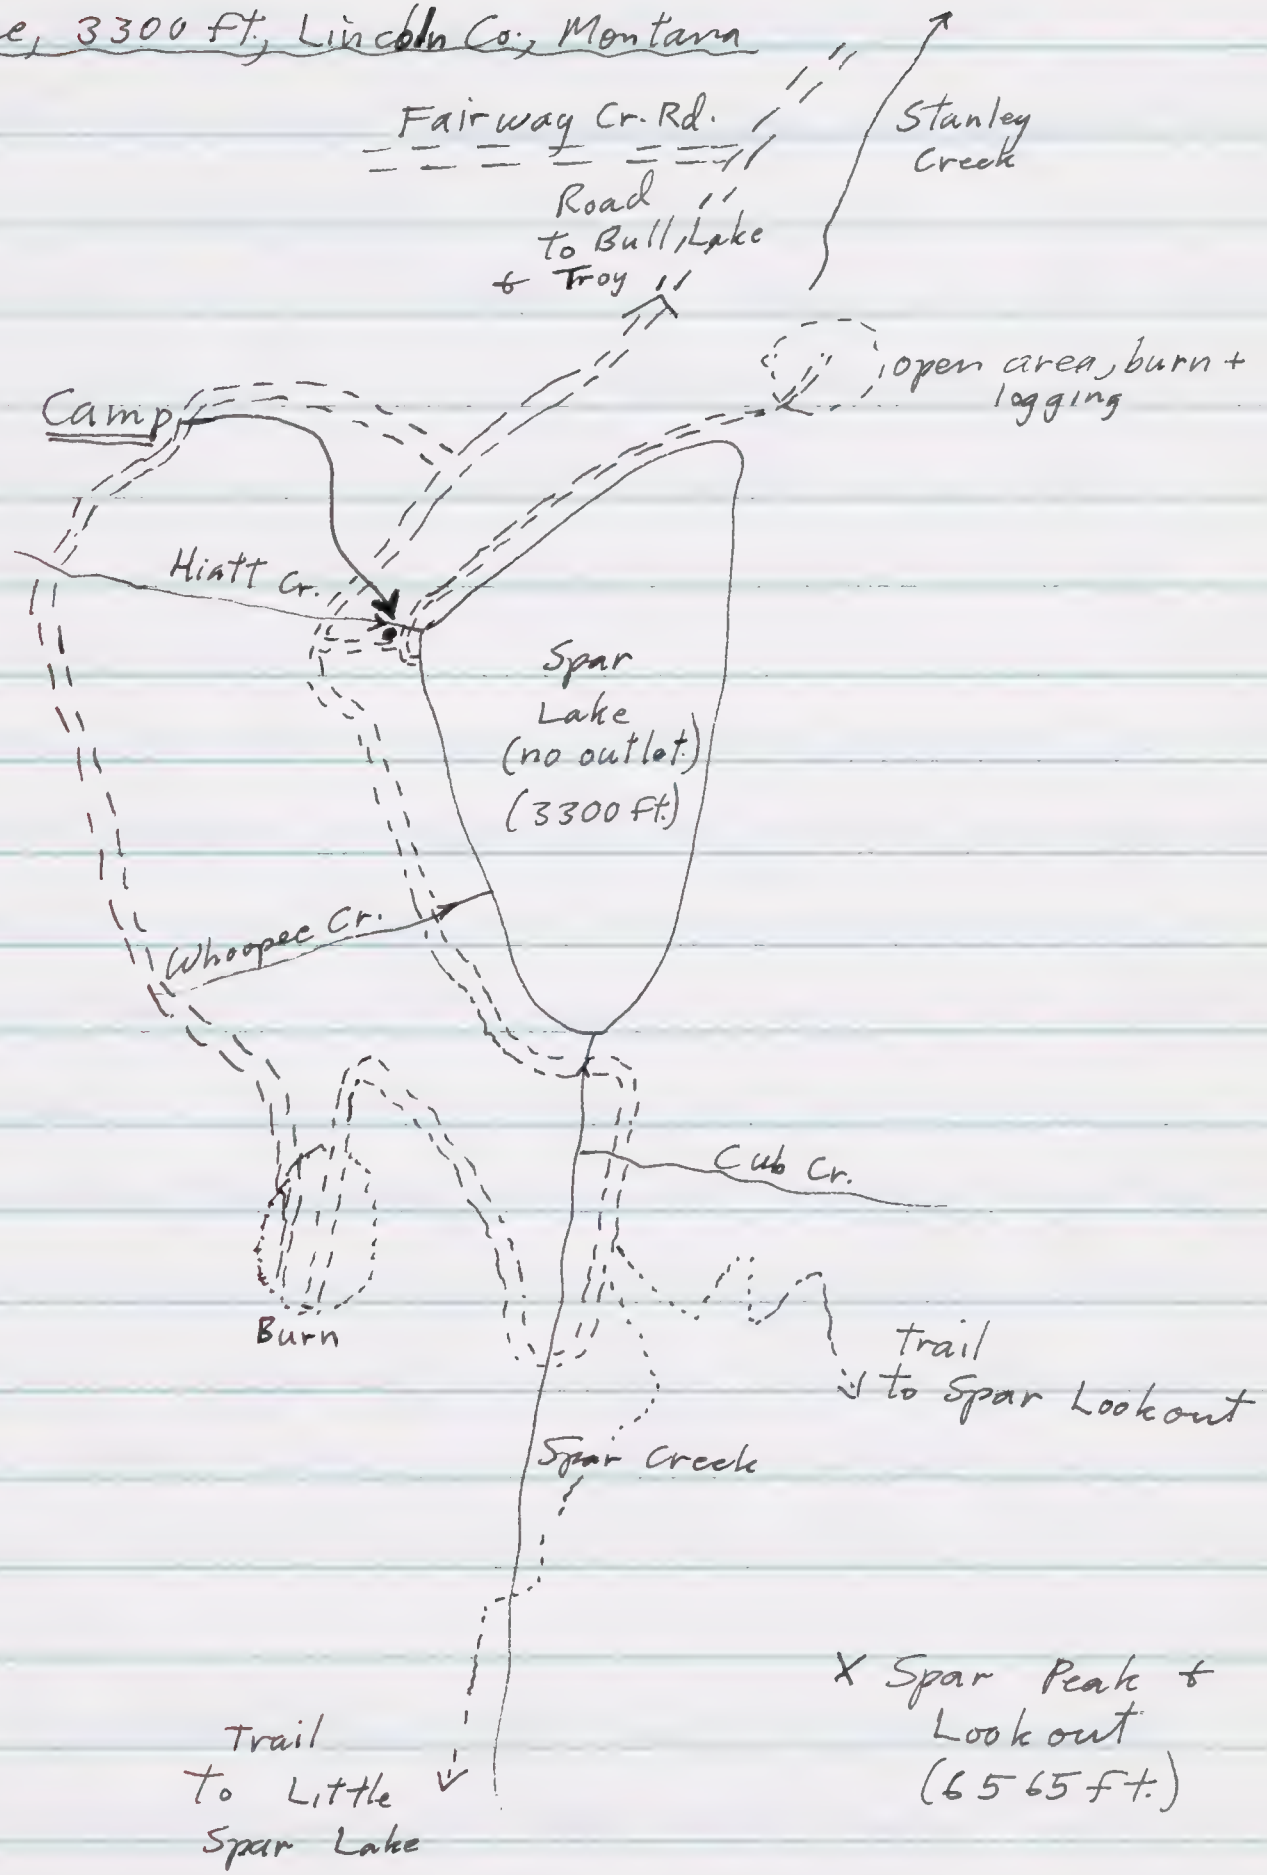 e, 3300 ft., Lincoln Co., Montana
Fairway Cr. Rd.
Stanley
Creek
Road
to Bull Lake
& Troy
open area, burn +
logging
Camp
Hiatt Cr.
Spar
Lake
(no outlet)
(3300 ft.)
Whoopee Cr.
Cub Cr.
Burn
Trail
to Spar Lookout
Spar Creek
X Spar Peak &
Lookout
(6565 ft.)
Trail
to Little
Spar Lake